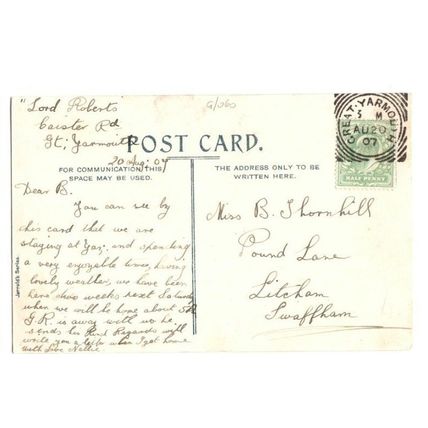 "Lord Roberts
Caister Rd
Gt. Yarmouth
20 Aug. 07
G/060
POST CARD.
FOR COMMUNICATION THIS
SPACE MAY BE USED.
THE ADDRESS ONLY TO BE
WRITTEN HERE.
GREAT·YARMOUTH
5 M
AU 20
07
HALF PENNY
Dear B.
You can see by
this card that we are
staying at Yar. and spending
a very enjoyable time, having
lovely weather, we have been
here two weeks next Saturday
when we will be home about
G.R. is away with us he
sends his kind Regards will
write you a letter when I get home
with Love Nellie
Miss B. Thornhill
Pound Lane
Litcham
Swaffham
Jarrolds Series.